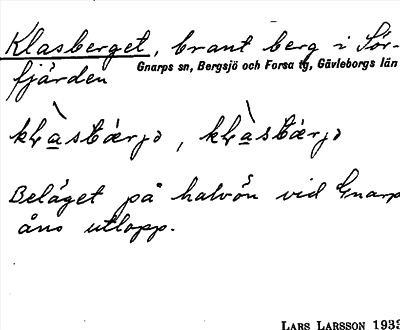 Klasberget, brant berg i Sör-
fjärden Gnarps sn, Bergsjö och Forsa tg, Gävleborgs län
Beläget på halvön vid Gnarp
åns utlopp.
LARS LARSSON 1933